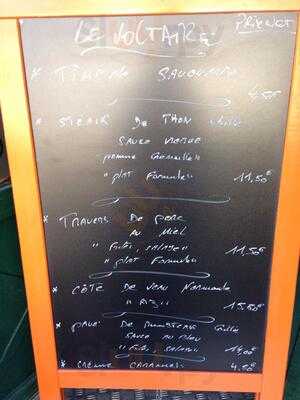 LE VOLTAIRE
* SAVOYARDE
4,50€
* STEAK DE THON Grillé
SAUCE VIERGE
pomme Grenailles
"plat Formule" 11,50€
* TRAVERS DE PORC
AU MIEL
"Frites, salade" 11,50€
"plat Formule"
* CÔTE DE VEAU Normande
"Riz" 15,50€
* PAVÉ DE RUMSTEAK Grillé
SAUCE AU BLEU
"Frites, salade" 14,00€
* CRÈME CARAMEL 4,50€